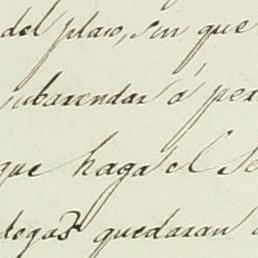 del plaso, sin que
subarrendar ó per
que haga el Se
degas quedaran